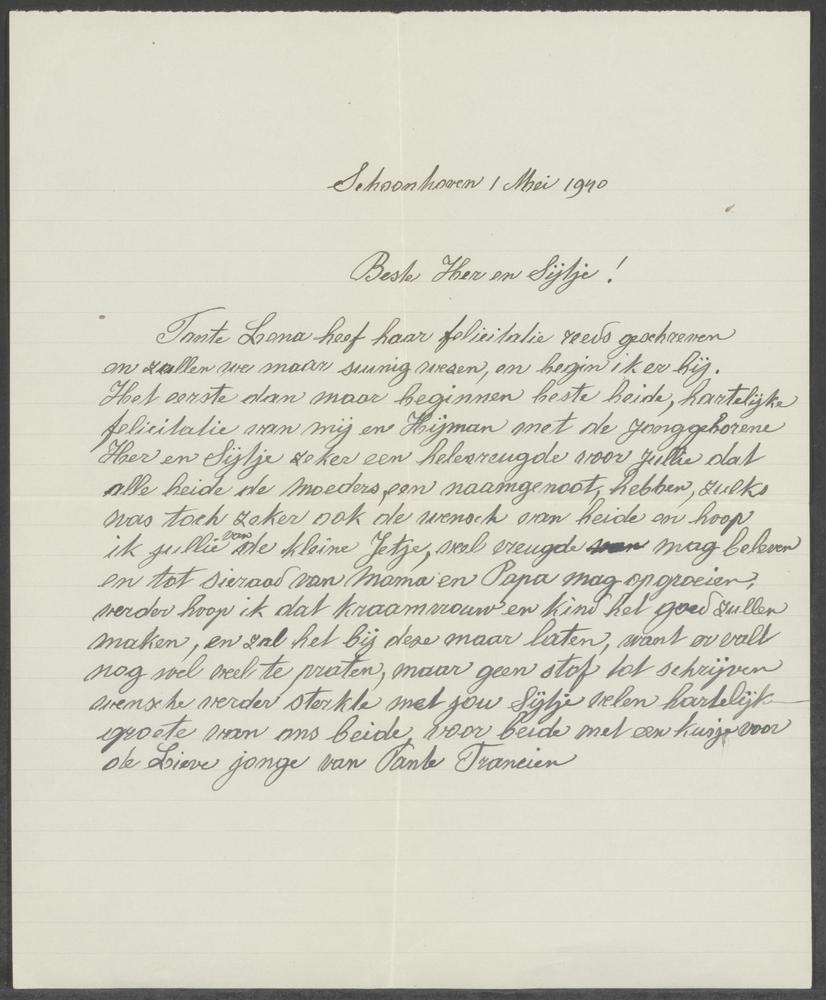 Schoonhoven 1 Mei 1940
Beste Her en Sijtje!
Tante Lena heef haar felicitatie reeds geschreven
en zullen we maar zuinig wesen, en begin ik er bij.
Het eerste dan maar beginnen beste beide, hartelijke
felicitatie van mij en Hijman met de jonggeborene
Her en Sijtje zeker een hele vreugde voor jullie dat
alle beide de moeders, een naamgenoot, hebben, zulks
was toch zeker ook de wensch van beide en hoop
ik jullie van de kleine Jetje, veel vreugde mag beleven
en tot sieraad van Mama en Papa mag opgroeien,
verder hoop ik dat kraamvrouw en kind het goed zullen
maken, en zal het bij deze maar laten, want er valt
nog wel veel te praten, maar geen stof tot schrijven
wensche verder sterkte met jou Sijtje velen hartelijk
groete van ons beide, voor beide met een kusje voor
de Lieve jonge van Tante Francien